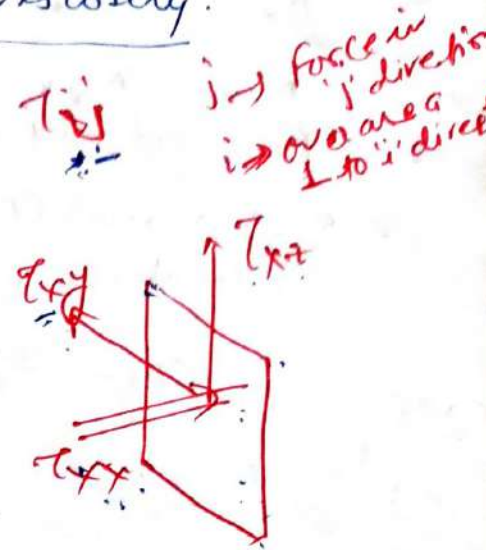 viscosity.
τij
j → force in
'j' direction
i → over area
⊥ to 'i' direct
τxz
τxy
τxx